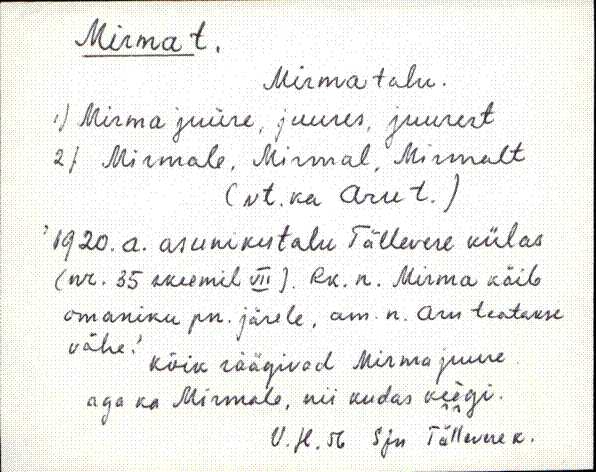 Mirma t.
Mirma talu.
1) Mirma juure, juures, juurest
2) Mirmale, Mirmal, Mirmalt
(vt. ka Aru t.)
1920. a. asunikutalu Tällevere külas
(nr. 35 skeemil VII). Rk. n. Mirma käib
omaniku pn. järele, am. n. Aru teatakse
vähe!
kõik räägivad Mirma juure
aga ka Mirmale, nii kudas keegi.
V. H. 56 Sjn Tällevere k.